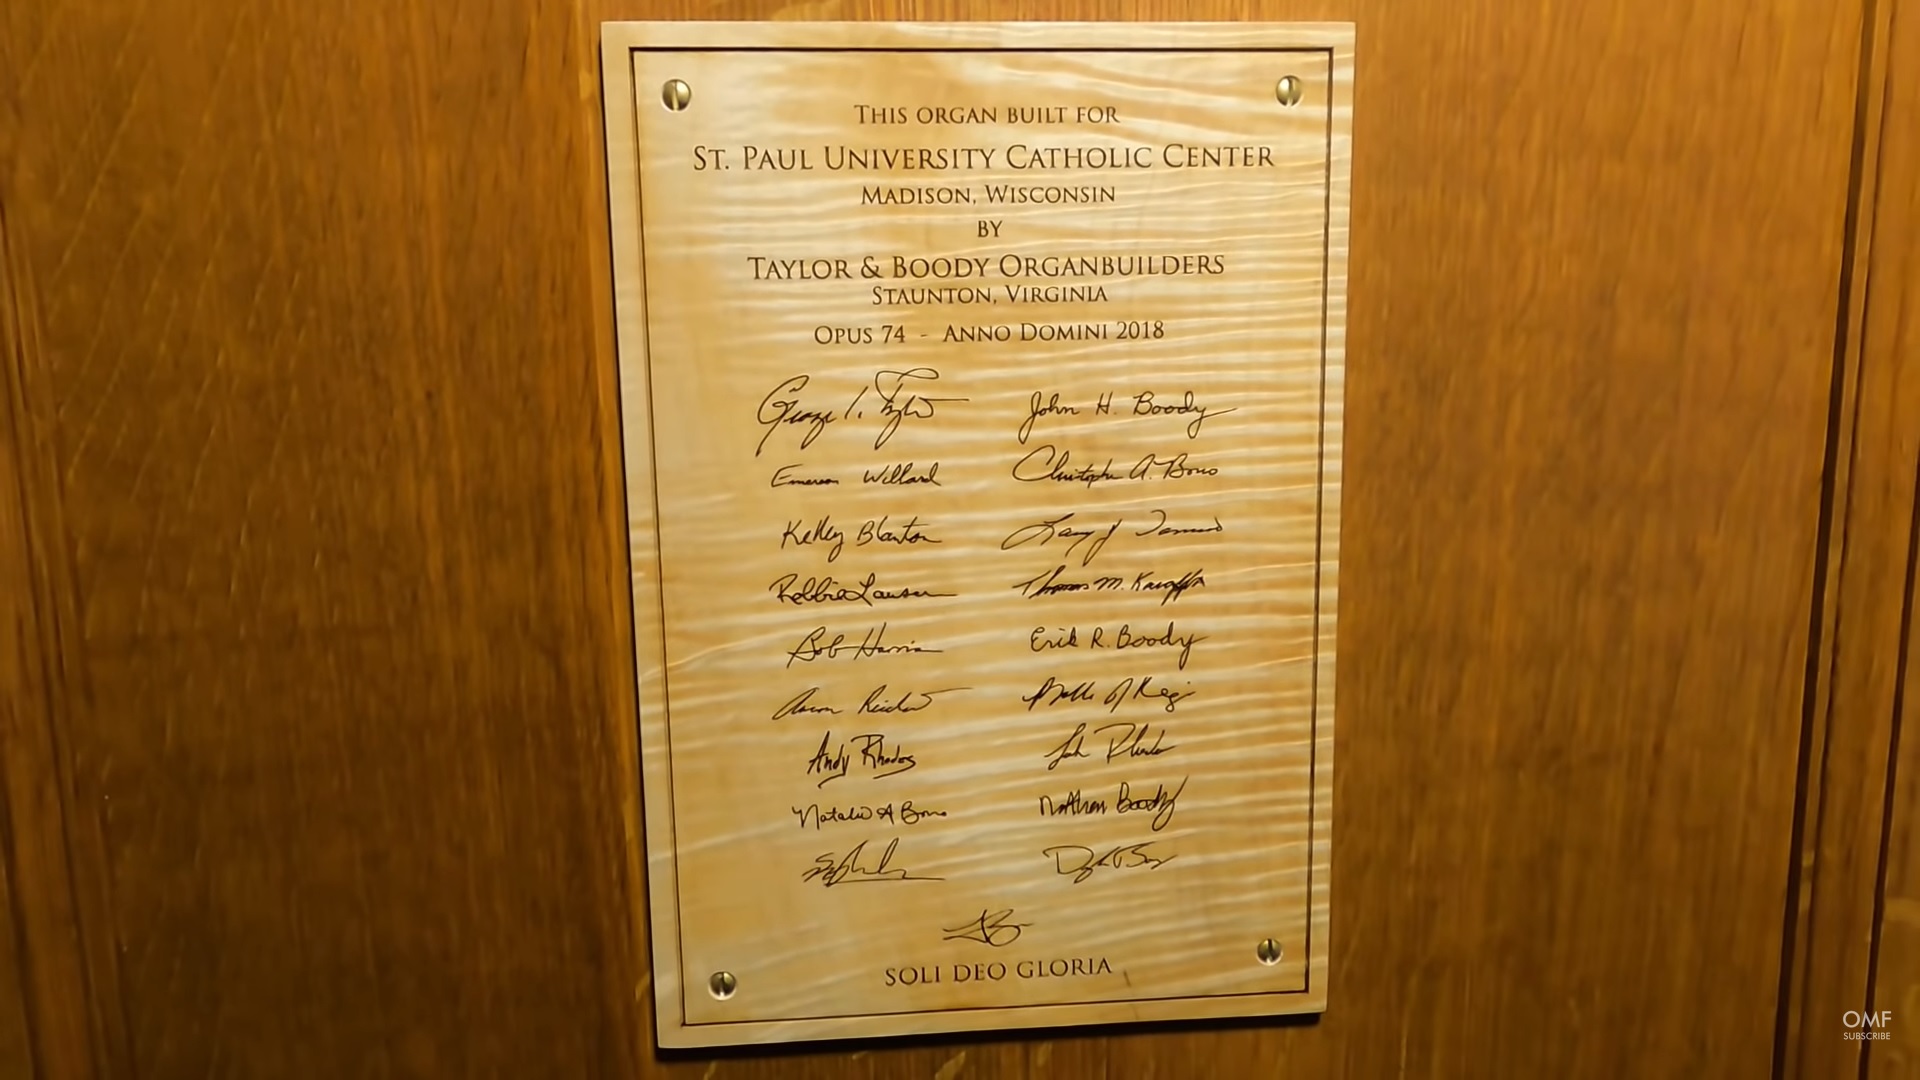 THIS ORGAN BUILT FOR
ST. PAUL UNIVERSITY CATHOLIC CENTER
MADISON, WISCONSIN
BY
TAYLOR & BOODY ORGANBUILDERS
STAUNTON, VIRGINIA
OPUS 74 - ANNO DOMINI 2018
George John H. Boody
Emerson Willard Christopher A. Bono
Kelley Blanton Larry J.
Robbie Lawson Thomas M.
Bob Harris Erik R. Boody
Aaron
Andy Rhodes
Natalie A Bono Nathan Boody
SOLI DEO GLORIA
OMF
SUBSCRIBE